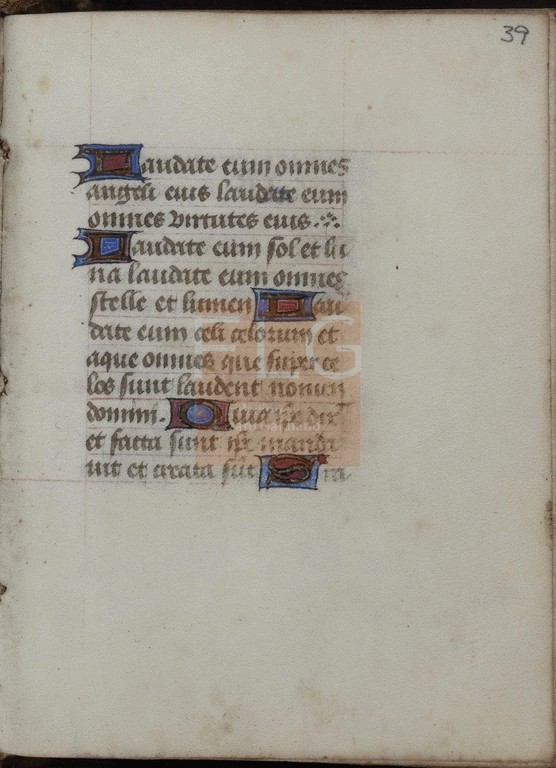 39
Laudate eum omnes
angeli eius laudate eum
omnes virtutes eius.
Laudate eum sol et lu
na laudate eum omnes
stelle et lumen Lau
date eum celi celorum et
aque omnes que super ce
los sunt laudent nomen
domini. Quia ip̄e dix
et facta sunt ip̄e manda
uit et creata sūt Sta